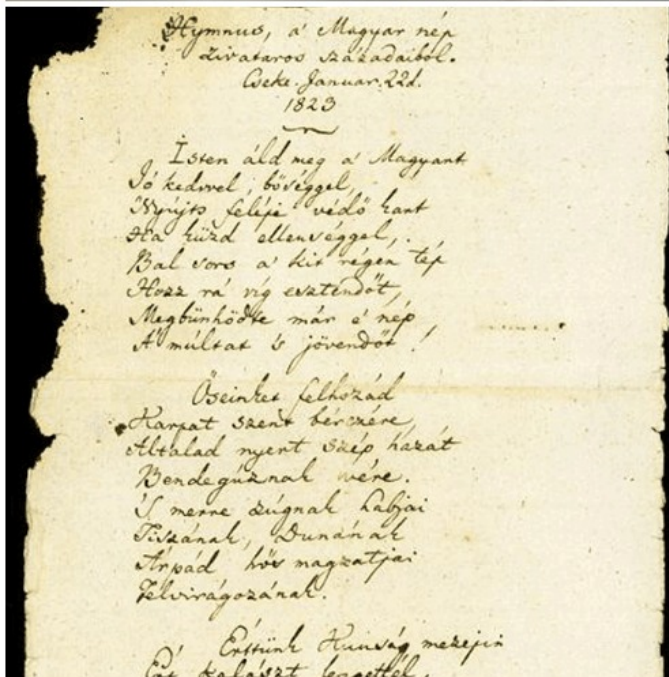 Hymnus, a' Magyar nép
zivataros századaiból.
Cseke. Januar. 22d.
1823
Isten áld meg a' Magyart
Jó kedvvel, bőséggel,
Nyújts feléje védő kart
Ha küzd ellenséggel,
Bal sors a' kit régen tép
Hozz rá víg esztendőt,
Megbünhődte már e' nép
A' múltat 's jövendőt!
Őseinket felhozád
Kárpát szent bérczére
Általad nyert szép hazát
Bendegúznak vére.
'S merre zúgnak habjai
Tiszának, Dunának
Árpád hős magzatjai
Felvirágozának.
Értünk Kunság mezején
Ért kalászt lengettél,